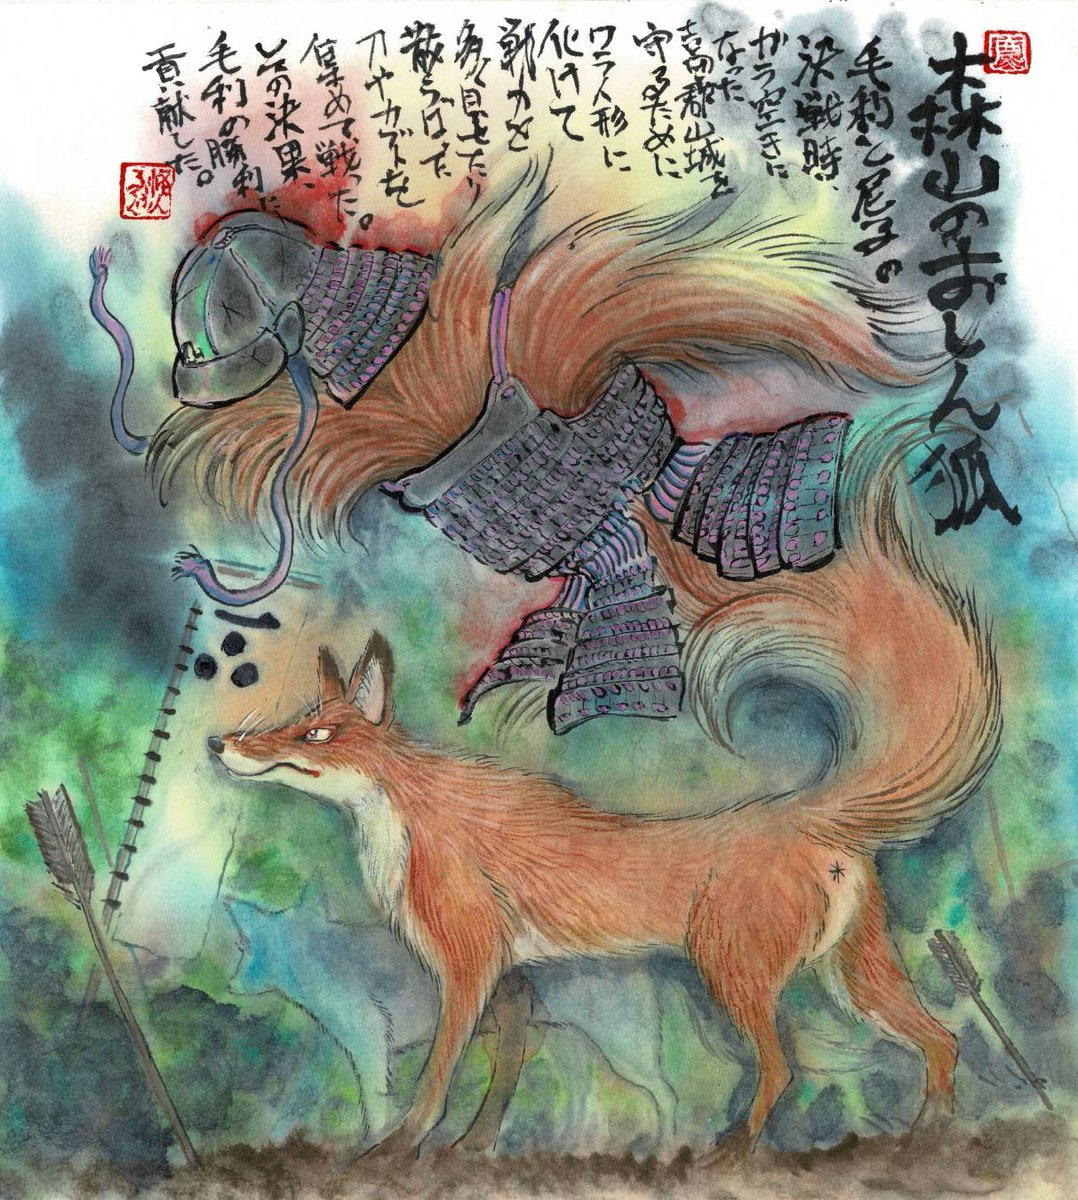 森山のおしん狐
毛利と尼子の
決戦時、
ガラ空きに
なった
吉田郡山城を
守るために
ワラ人形に
化けて
戦力を
多く見せたり
散らばった
刀やカブトを
集めて戦った。
その決果、
毛利の勝利に
貢献した。